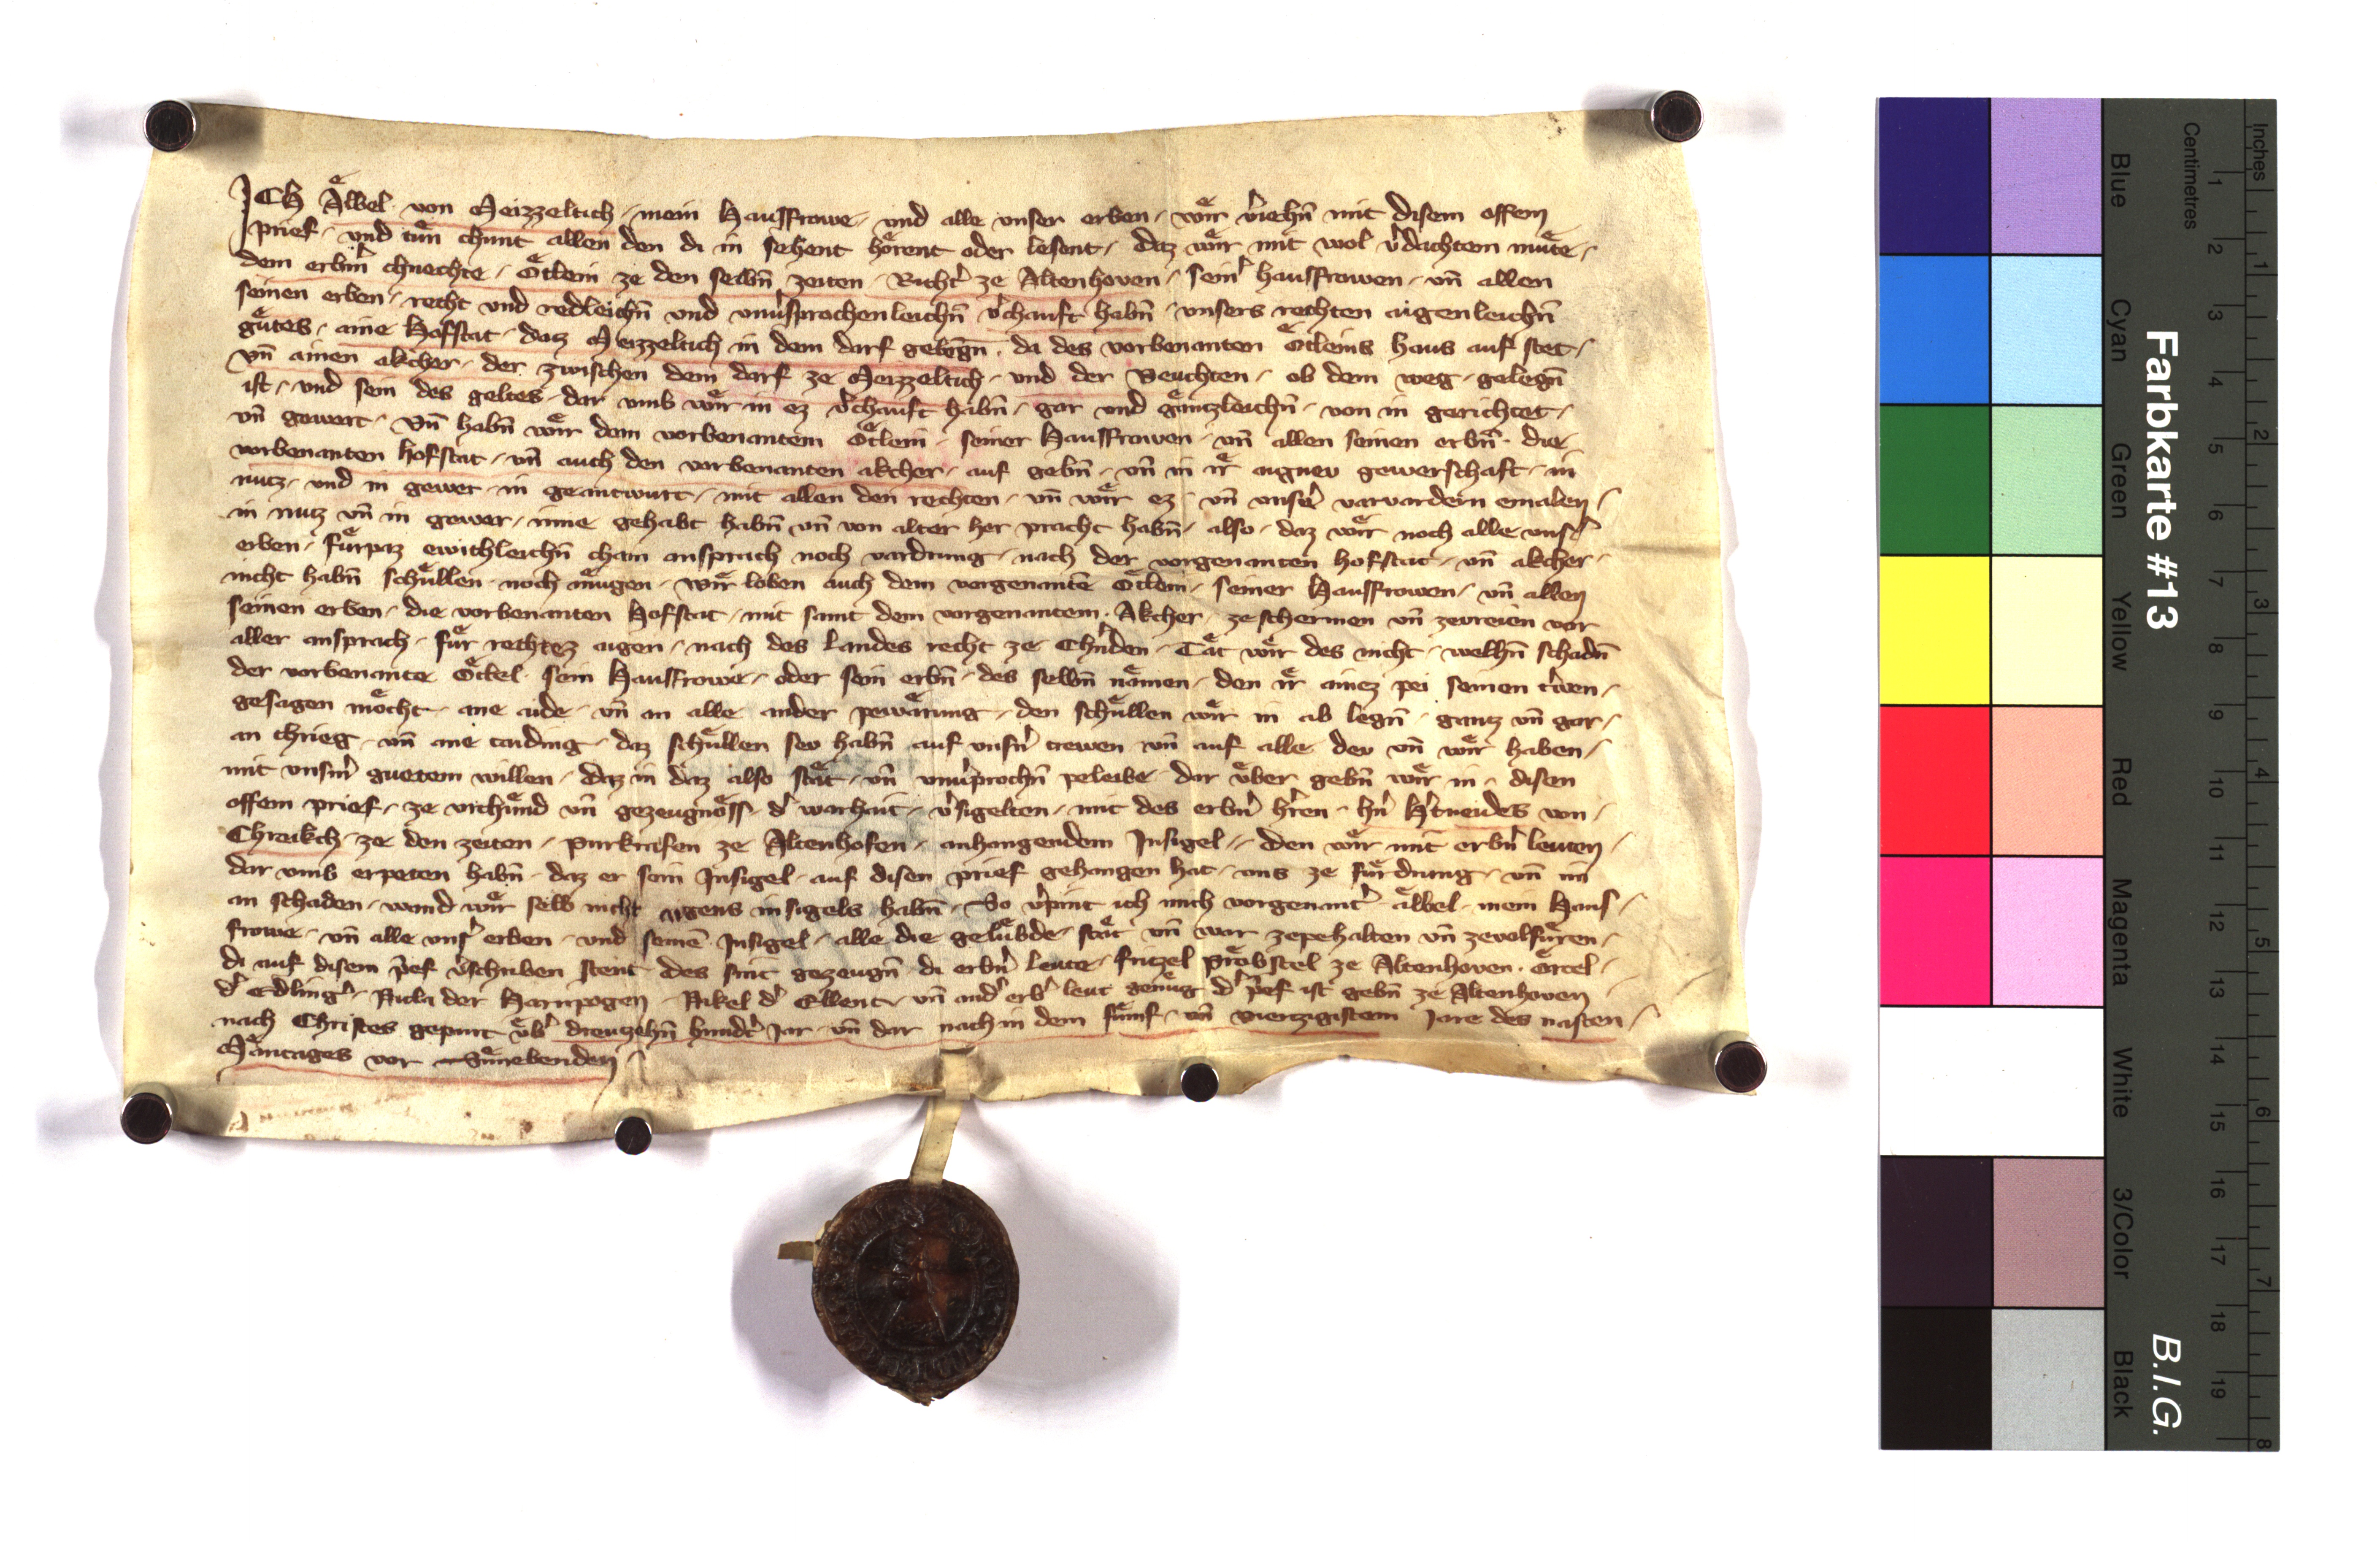 ICH Aͤlbel von Meizzeltich mein Hausfrowe und alle unser erben wiͤr v̾iehn̄ mit disem offem
prief und tuͤn chunt allen den di in sehent hoͤrent oder lesent daz wiͤr mit wol v̾dachtem muͤte
dem erbm̄ chnechte Oͤtlein ze den selbn̄ zeiten Richt̾ ze Altenhoven sein̾ hausfrowen vn̄ allen
seinen erben recht und redleichn̄ und unv̾sprochenleichn̄ v̾chauft habn̄ unsers rechten aigenleichn̄
guͤtes aine Hofstat daz Meizzeltich in dem darf gelegn̄ da des vorbenanten Oͤtleins haus auf stet
vn̄ ainen akcher der zwischen dem darf ze Meizzeltich und der Veuchten ob dem weg gelegn̄
ist und sem des geltes dar umb wiͤr in ez v̾chauft habn̄ gar und gaͤntzleichn̄ von in gerichtet
vn̄ gewert Vn̄ habn̄ wiͤr dem vorbenantem Oͤtlein seiner Hausfrowen vn̄ allen seinen erbn̄ die
vorbenanten hofstat vn̄ auch den vorbenanten akcher auf gebn̄ vn̄ in iͤr aigner gewerschaft in
nutz und in gewer in geantwurt mit allen den rechten vn̄ wiͤr ez vn̄ unser̾ varvardern emalen
in nutz vn̄ in gewer inne gehabt habn̄ vn̄ von alter her pracht habn̄ also daz wiͤr noch alle uns̾
erben fuͤrpaz ewichleichn̄ chain ansprach noch vardrung nach der vorgenanten hofstat vn̄ akcher
nicht habn̄ schuͤllen noch muͤgen wiͤr loben auch dem vorgenantē Oͤtlein seiner Hausfrowen vn̄ allen
seinen erben die vorbenanten Hofstat mit samt dem vorgenantem Akcher ze schermen vn̄ zevreien vor
aller ansprach fuͤr rechtez aigen nach des landes recht ze Ch̾nden Taͤt wiͤr des nicht welhn̄ schadn̄
der vorbenante Oͤtel sein Hausfrowe oder sein erbn̄ des selbn̄ naͤmen den iͤr ainez pei seinen trͤwen
gesagen moͤcht ane aide vn̄ an alle ander pewaͤrung den schuͤllen wiͤr in ab legn̄ gantz vn̄ gar
an chrieg vn̄ ane taiding daz schuͤllen sev habn̄ auf unsn̾ trewen vn̄ auf alle dev vn̄ wiͤr haben
mit unsm̾ guetem willen daz in daz also staͤt vn̄ unv̾prochn̄ peleibe dar uͤber gebn̄ wiͤr in disen
offem prief ze urchuͤnd vn̄ gezeugnoͤss d̾ warhait v̾sigelten mit des erbn̾ h̾ren hn̾ H̾tneides von
Chreikch ze den zeiten purkrafen ze Altenhofen anhangendem Insigel den wiͤr mit erbn̾ leuten
dar umb erpeten habn̄ daz er sein Insigel auf disen prief gehangen hat uns ze fuͤrdrung vn̄ im
an schaden wand wiͤr selb nicht aigens insigels habn̄ So v̾pint ich mich vorgenant̾ aͤlbel mein Haus
frowe vn̄ alle uns̾ erben und seinē Insigel alle die geluͤbde staͤt vn̄ war zepehalten vn̄ zevolfuͤren
di auf disem p̾ef v̾schriben stent des sint gezeugn̄ di erbn̾ leute fritzel proͤbstel ze Altenhoven Oͤrtel
d̾ Edling̾ Nicla der Harnpogen Nikel d̾ Ellent vn̄ and̾ erb̾ leut genuͤg d̾ p̾ef ist gebn̄ ze Altenhoven
nach Christes gepurt uͤb̾ dreutzehn̄ hundt̾ Jar vn̄ dar nach in dem fuͤmf vn̄ vierzigistem Jare des nasten
Maͤntages vor Suͤnebenden
Farbkarte #13
B.I.G.
Blue
Cyan
Green
Yellow
Red
Magenta
White
3/Color
Black
Centimetres
Inches
1 2 3 4 5 6 7 8 9 10 11 12 13 14 15 16 17 18 19
1 2 3 4 5 6 7 8